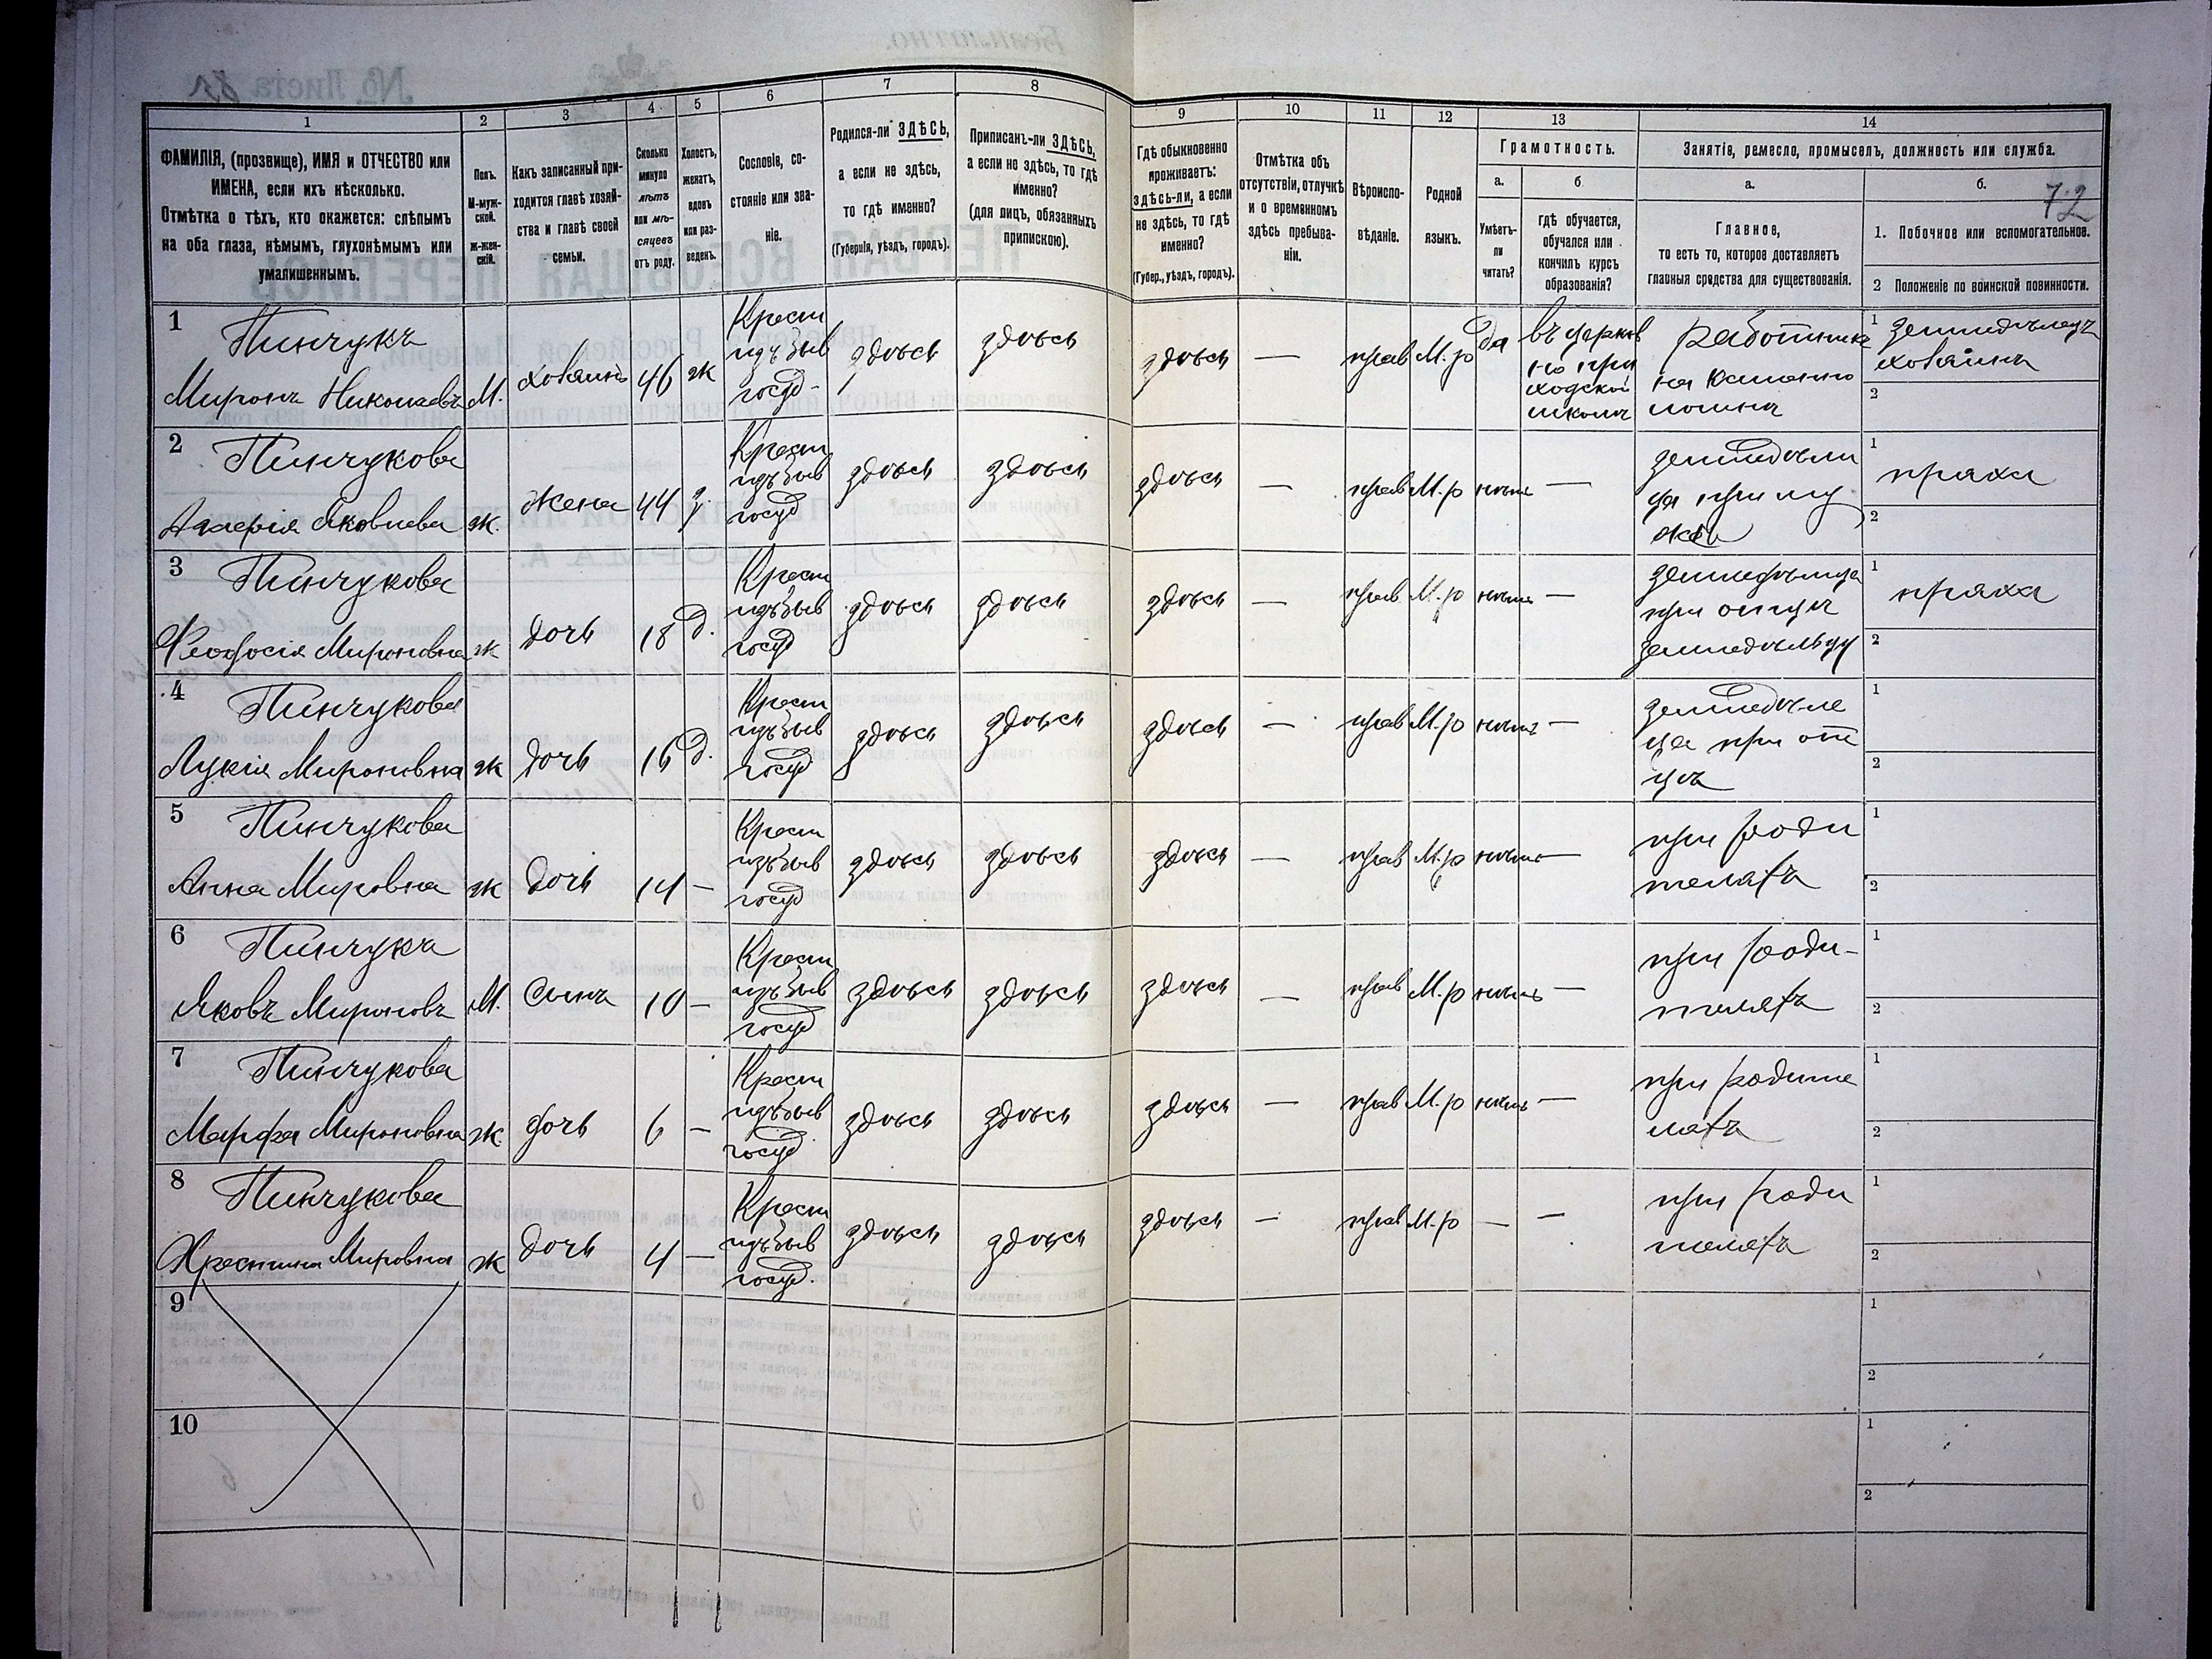 72
1
2
3
4
5
6
7
8
9
10
11
12
13
14
ФАМИЛІЯ, (прозвище), ИМЯ и ОТЧЕСТВО или
ИМЕНА, если ихъ нѣсколько.
Отмѣтка о тѣхъ, кто окажется: слѣпымъ
на оба глаза, нѣмымъ, глухонѣмымъ или
умалишеннымъ.
Полъ.
М-муж-
ской.
Ж-жен-
скій.
Какъ записанный при-
ходится главѣ хозяй-
ства и главѣ своей
семьи.
Сколько
минуло
лѣтъ
или мѣ-
сяцевъ
отъ роду.
Холостъ,
женатъ,
вдовъ
или раз-
веденъ.
Сословіе, со-
стояніе или зва-
ніе.
Родился-ли ЗДѢСЬ,
а если не здѣсь,
то гдѣ именно?
(Губернія, уѣздъ, городъ).
Приписанъ-ли ЗДѢСЬ,
а если не здѣсь, то гдѣ
именно?
(для лицъ, обязанныхъ
припискою).
Гдѣ обыкновенно
проживаетъ:
здѣсь-ли, а если
не здѣсь, то гдѣ
именно?
(Губер., уѣздъ, городъ).
Отмѣтка объ
отсутствіи, отлучкѣ
и о временномъ
здѣсь пребыва-
ніи.
Вѣроиспо-
вѣданіе.
Родной
языкъ.
Грамотность.
а.
Умѣетъ-
ли
читать?
б
гдѣ обучается,
обучался или
кончилъ курсъ
образованія?
Занятіе, ремесло, промыселъ, должность или служба.
а.
Главное,
то есть то, которое доставляетъ
главныя средства для существованія.
б.
1. Побочное или вспомогательное.
2 Положеніе по воинской повинности.
1
Пинчукъ
Миронъ Николаевъ
М.
хозяинъ
46
ж
Крест
изъ быв
госуд-
здѣсь
здѣсь
здѣсь
—
прав
М. р
да
въ церков
но при
ходской
школѣ
работникъ
1 земледѣлецъ
хозяинъ
2
2
Пинчукова
Яковлева
ж.
жена
44
з.
Крест
изъ быв
госуд
здѣсь
здѣсь
здѣсь
—
прав
М. р
нѣтъ
—
земледѣли
ца при му
жѣ
1
пряха
2
3
Пинчукова
Феодосія Мироновна
ж
дочь
18
д.
Крест
изъ быв
госуд
здѣсь
здѣсь
здѣсь
—
прав
М. р
нѣтъ
—
земледѣлица
при отцѣ
земледѣльцу
1
пряха
2
4
Пинчукова
Лукія Мироновна
ж
дочь
16
д.
Крест
изъ быв
госуд
здѣсь
здѣсь
здѣсь
—
прав
М. р
нѣтъ
—
земледѣле
ца при от
цѣ
1
2
5
Пинчукова
Анна Мировна
ж
дочь
14
—
Крест
изъ быв
госуд
здѣсь
здѣсь
здѣсь
—
прав
М. р
нѣтъ
—
при роди
теляхъ
1
2
6
Пинчукъ
Яковъ Мироновъ
М.
Сынъ
10
—
Крест
изъ быв
госуд
здѣсь
здѣсь
здѣсь
—
прав
М. р
нѣтъ
—
при роди-
теляхъ
1
2
7
Пинчукова
Марфа Мироновна
ж
дочь
6
—
Крест
изъ быв
госуд
здѣсь
здѣсь
здѣсь
—
прав
М. р
нѣтъ
—
при родите
ляхъ
1
2
8
Пинчукова
Хрестина Мировна
ж
дочь
4
—
Крест
изъ быв
госуд.
здѣсь
здѣсь
здѣсь
—
прав
М. р
—
—
при роди
теляхъ
1
2
9
1
2
10
1
2